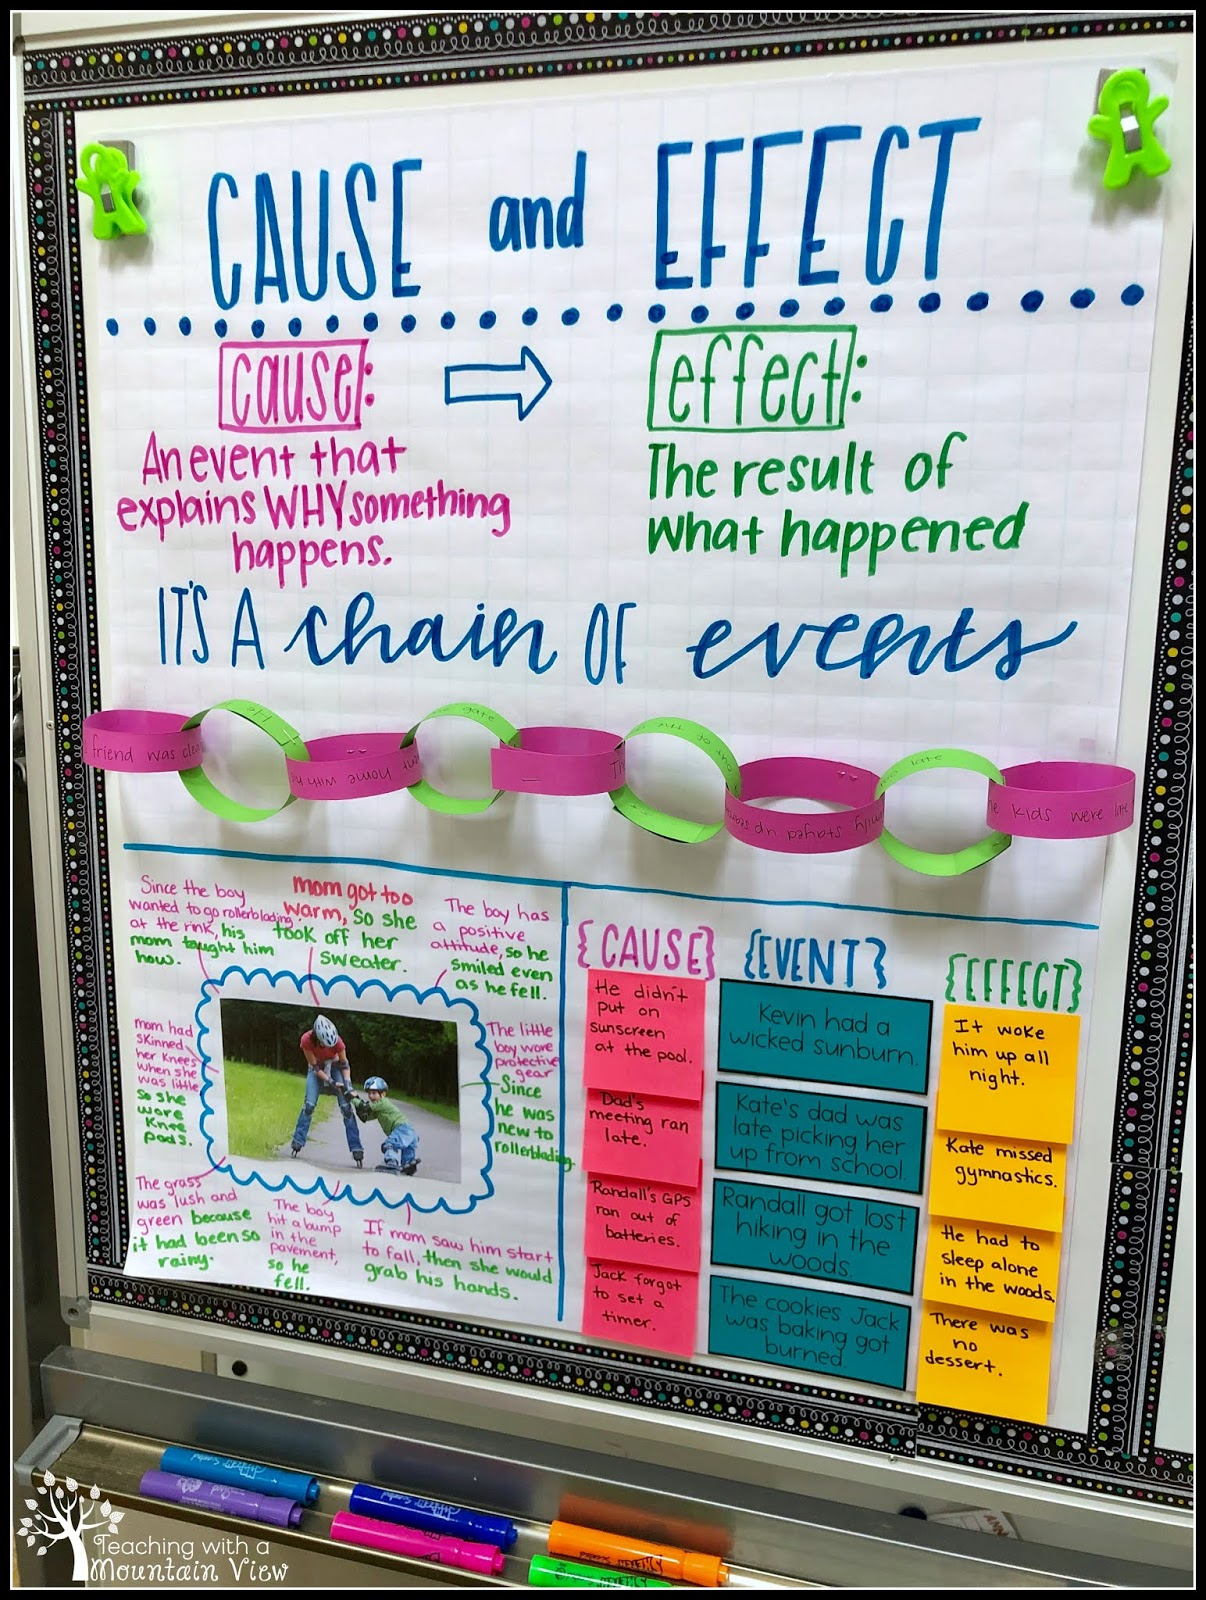 CAUSE and EFFECT
cause:
An event that
explains WHY something
happens.
effect:
The result of
what happened
IT'S A chain OF events
friend was
He
home with
gate
out of the
family stayed up
late
kids were late
Since the boy
wanted to go rollerblading
at the rink, his
mom taught him
how.
mom got too
warm, so she
took off her
sweater.
The boy has
a positive
attitude, so he
smiled even
as he fell.
mom had
skinned
her knees
when she
was little
so she
wore
knee
pads.
The little
boy wore
protective
gear
Since
he was
new to
rollerblading.
The grass
was lush and
green because
it had been so
rainy.
The boy
hit a bump
in the
pavement,
so he
fell.
If mom saw him start
to fall, then she would
grab his hands.
{CAUSE}
He didn't
put on
sunscreen
at the pool.
Dad's
meeting ran
late.
Randall's GPS
ran out of
batteries.
Jack forgot
to set a
timer.
{EVENT}
Kevin had a
wicked sunburn.
Kate's dad was
late picking her
up from school.
Randall got lost
hiking in the
woods.
The cookies Jack
was baking got
burned.
{EFFECT}
It woke
him up all
night.
Kate missed
gymnastics.
He had to
sleep alone
in the woods.
There was
no
dessert.
Teaching with a
Mountain View